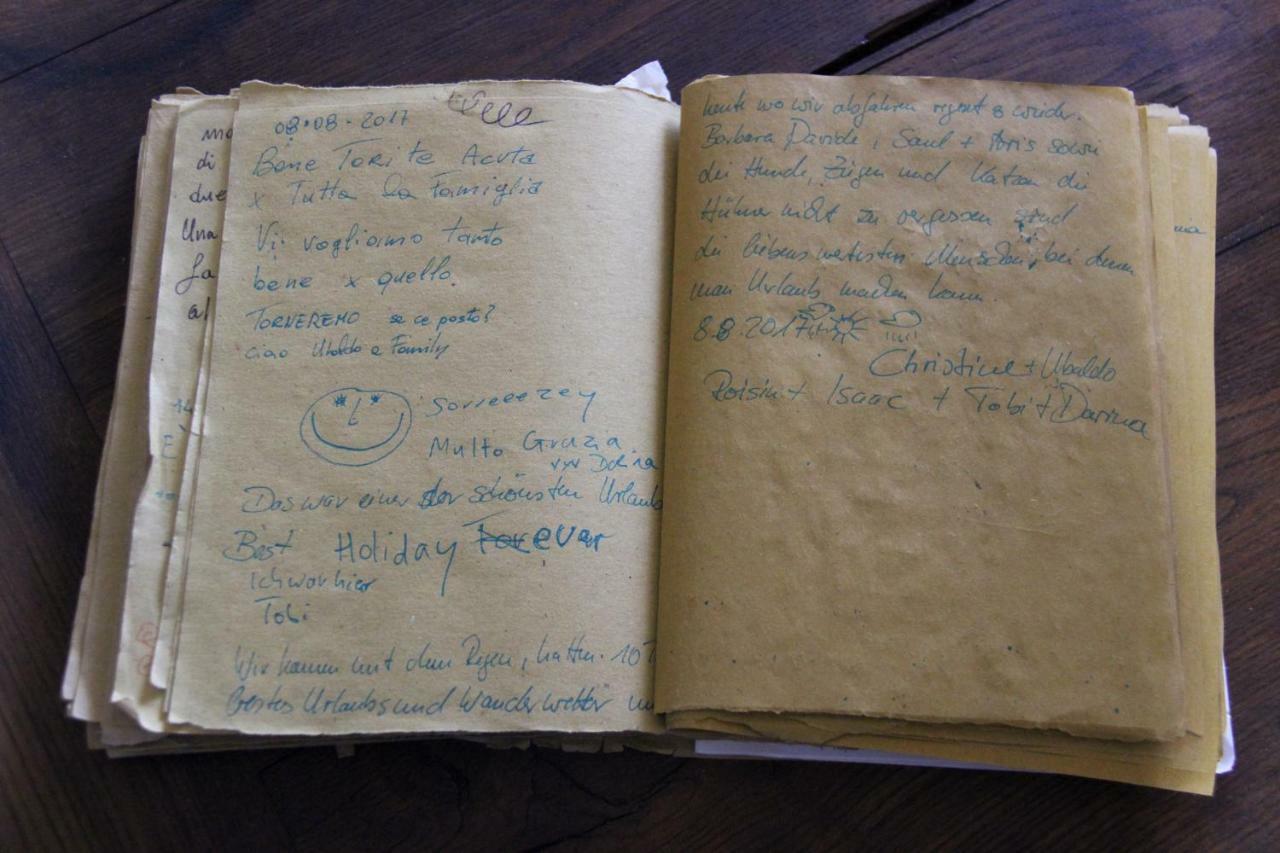 mo
di
due
Una
fa
al
08.08.2017
Bene Torite Acuta
x Tutta la Famiglia
Vi vogliamo tanto
bene x quello.
TORNEREMO se ce posto?
ciao Ubaldo e Family
Sorreeezey
Multo Grazia
Das war einer der schönsten Urlaub
Best Holiday Forever
Ich war hier
Tobi
Wir kamen mit dem Regen, hatten 10 T
bestes Urlaubs und Wanderwetter un
heute wo wir abfahren regnet es wieder.
Barbara Davide, Saul + Iris sowie
die Hunde, Ziegen und Katzen die
Hühner nicht zu vergessen sind
die liebenswertesten Menschen, bei denen
man Urlaub machen kann.
8.8.2017
Christine + Ubaldo
Roisin + Isaac + Tobi + Darina